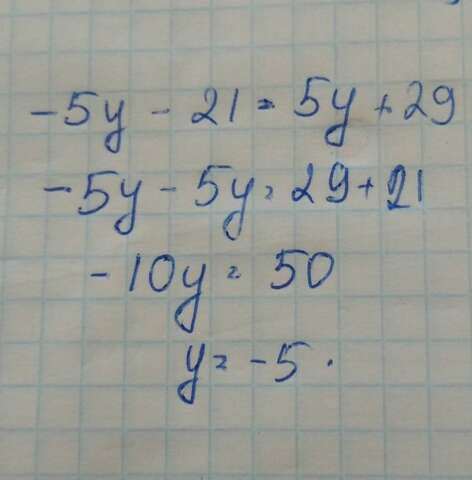 -5y - 21 = 5y + 29
-5y - 5y = 29 + 21
-10y = 50
y = -5.